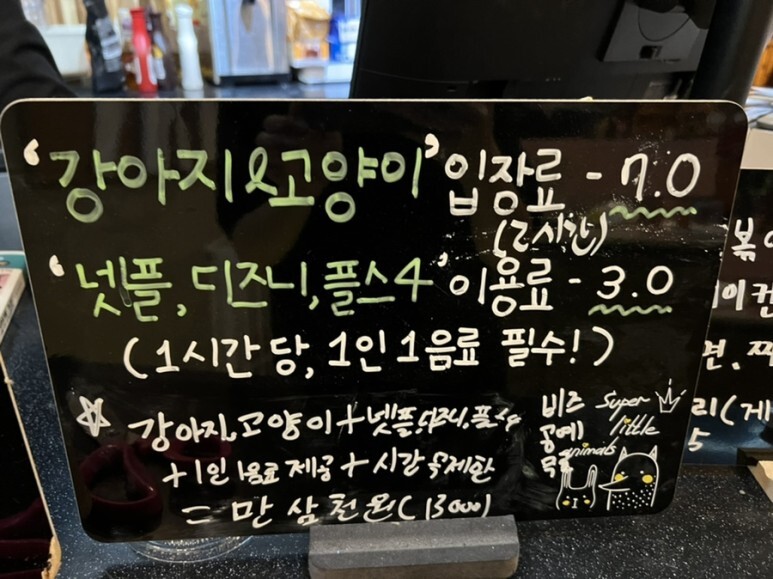 '강아지&고양이' 입장료 - 7.0
(2시간)
'넷플, 디즈니, 플스4' 이용료 - 3.0
(1시간 당, 1인 1음료 필수!)
☆ 강아지, 고양이 + 넷플, 디즈니, 플스4
+ 1인 1음료 제공 + 시간 무제한
= 만 삼천원 (13000)
비즈
공예
Super
little
animals
볶
이컨
면.
리(게
5